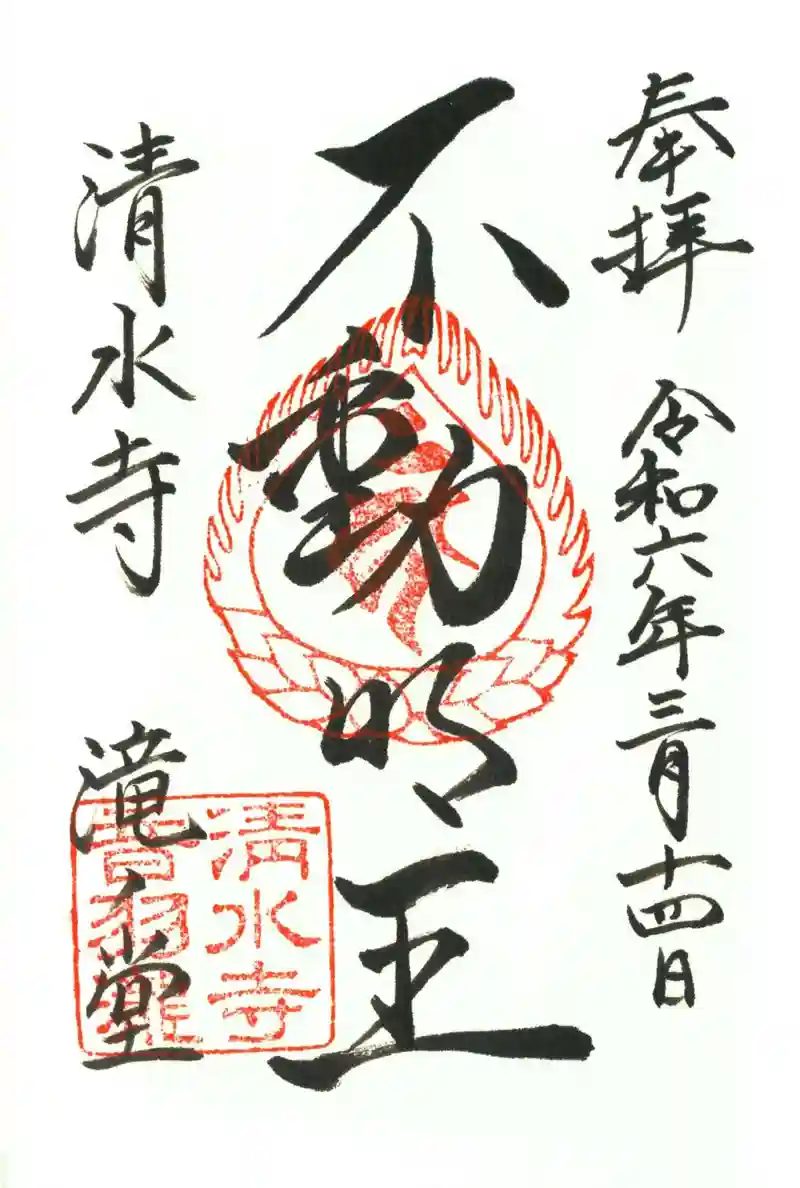 奉拝 令和六年三月十四日
不動明王
清水寺 滝堂
清水寺
音羽瀧